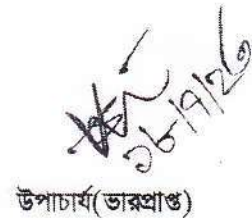 ১৮/৭/২৩
উপাচার্য(ভারপ্রাপ্ত)